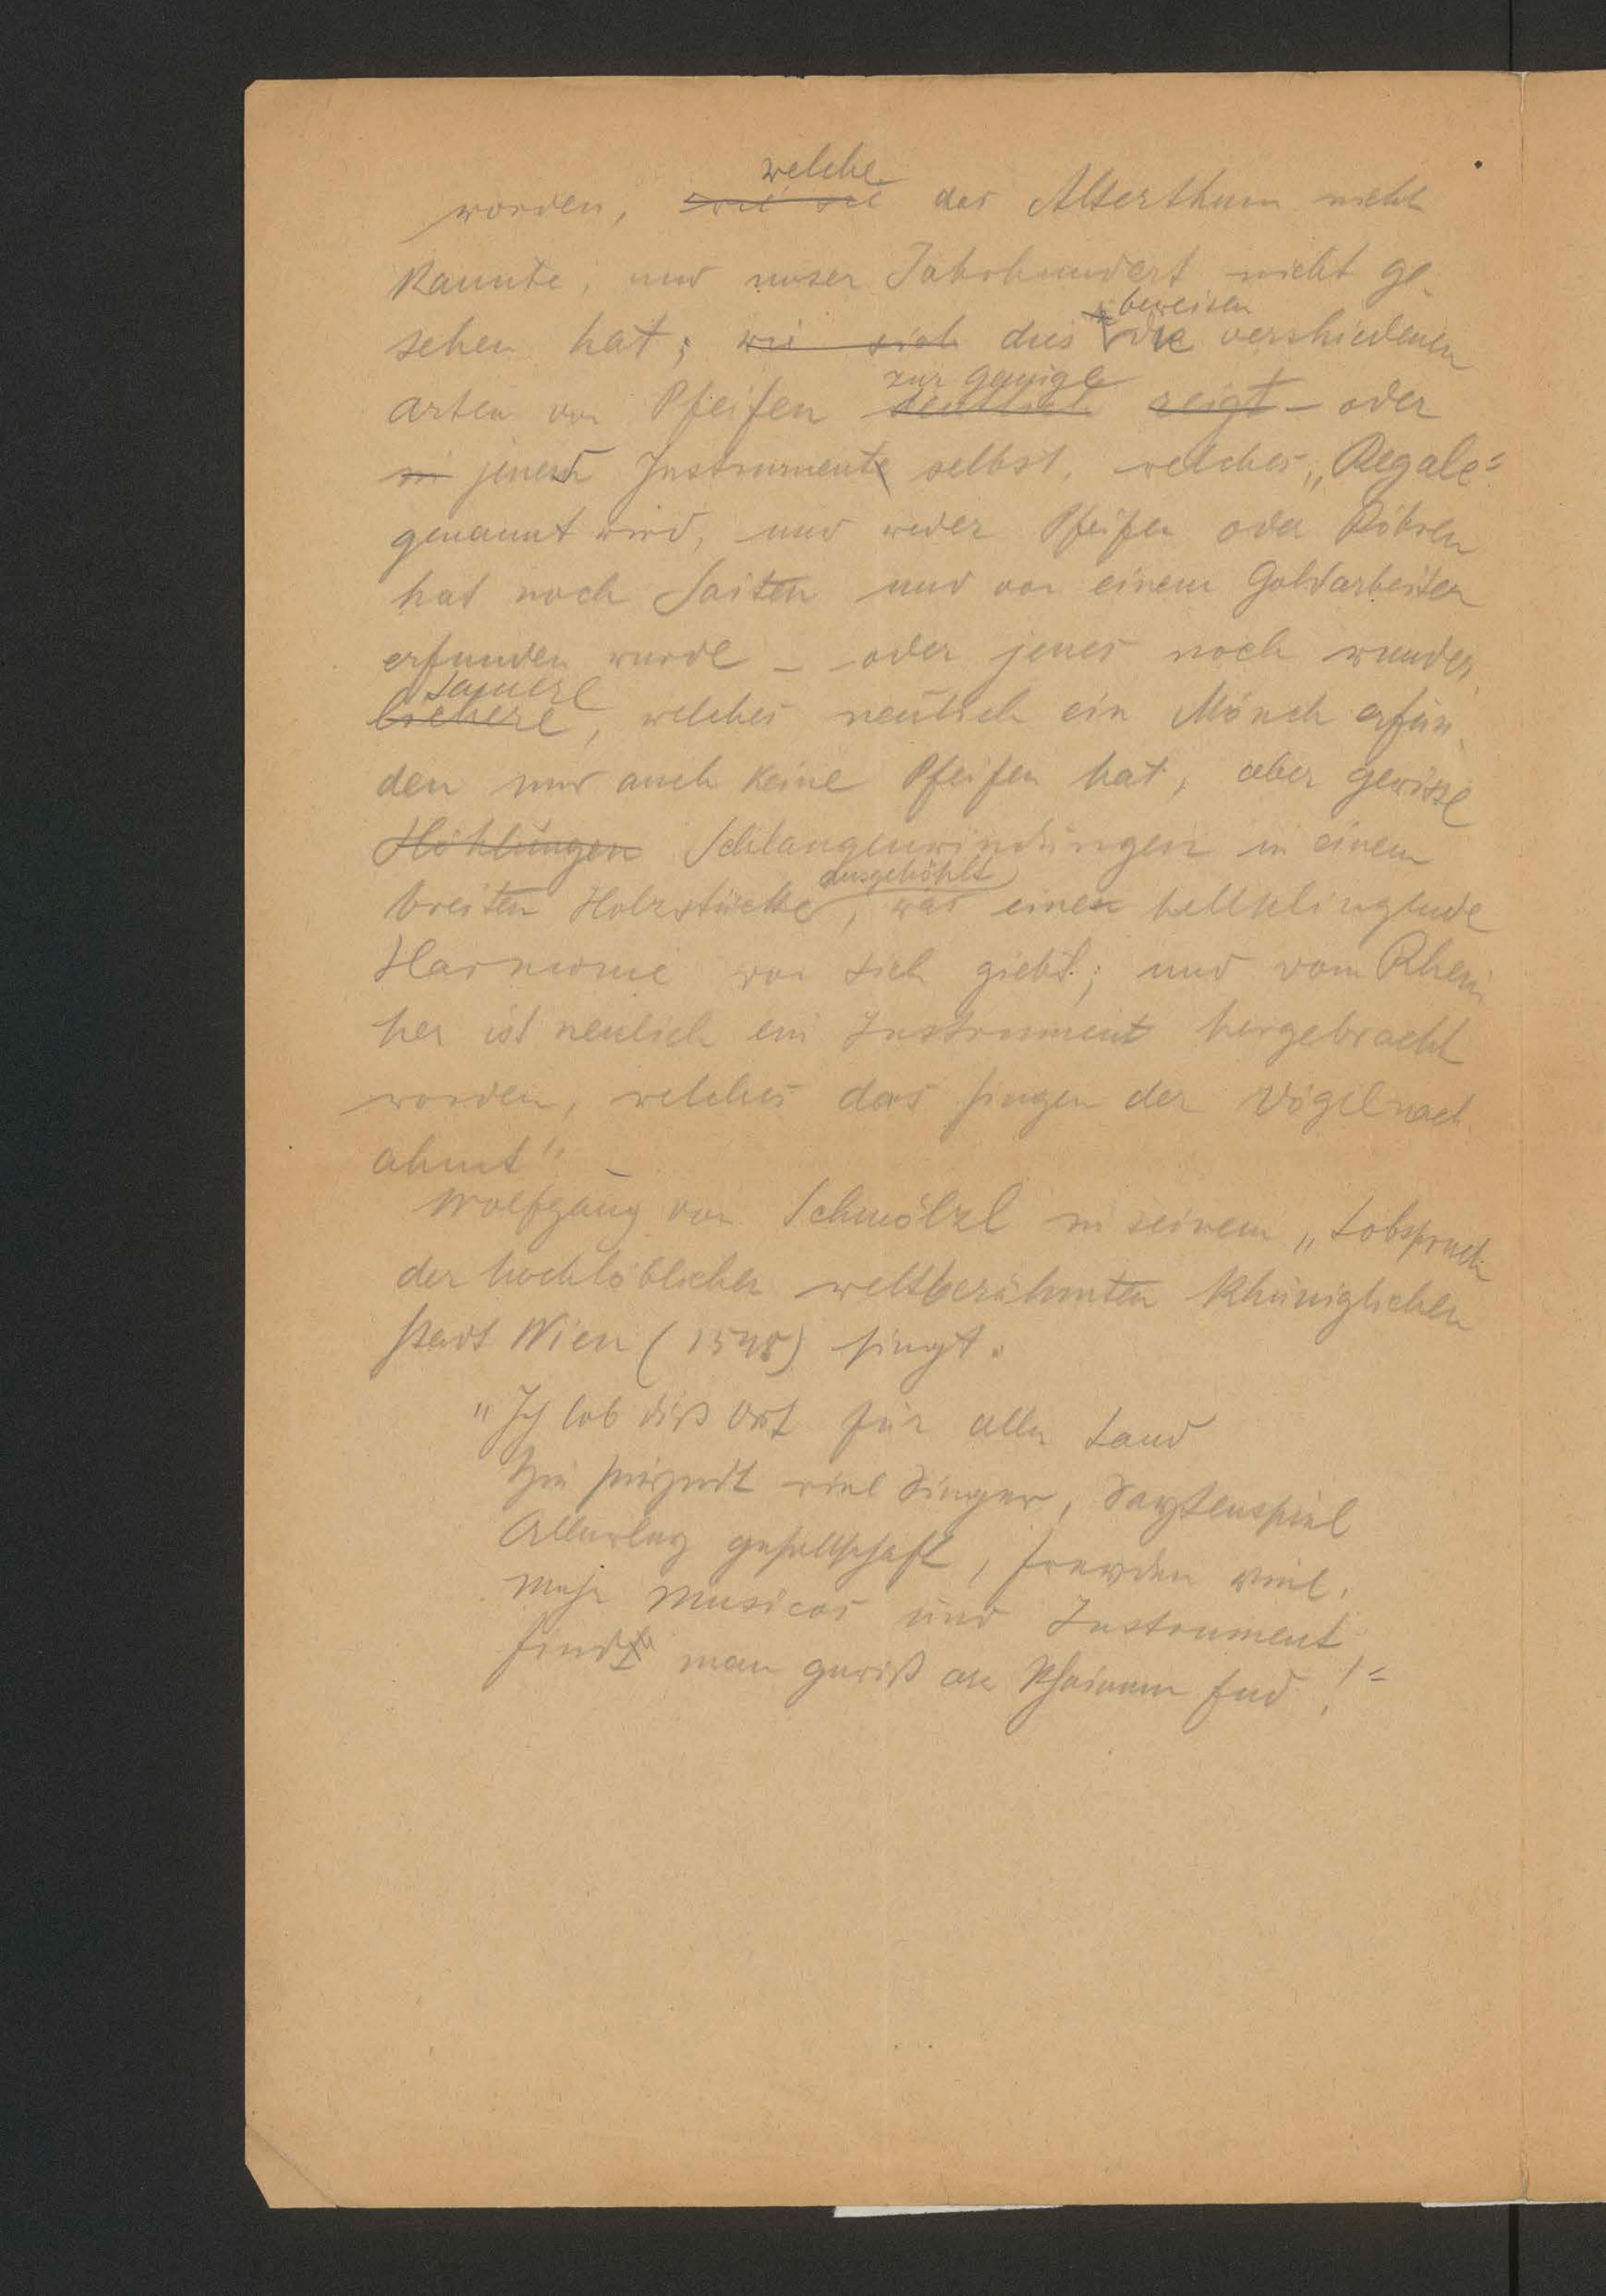 worden, wie sie welche das Alterthum nicht
kannte, und unser Jahrhundert nicht ge-
sehen hat; wie sich dies beweisen die verschiedenen
arten von Pfeifen deutlich zur genüge zeigt – oder
in jenes Instrument selbst, welches „Regale“
genannt wird, und weder Pfeifen oder Röhren
hat noch Saiten und von einem Goldarbeiter
erfunden wurde – oder jenes noch wunder-
lichere samere, welches neulich ein Mönch erfun-
den und auch keine Pfeifen hat, aber gewisse
Höhlungen Schlangenwindungen in einem
breiten Holzstücke ausgehöhlt, was eine hellklingende
Harmonie von sich giebt; und vom Rhein
her ist neulich ein Instrument hergebracht
worden, welches das singen der Vögel nach
ahmt“ –
Wolfgang von Schmölzl in seinem „Lobspruch
der hochlöblichen weltberühmten Khüniglichen
stadt Wien (1548) singt:
„Ich lob diß Ort für alle Land
Hie seind viel Singer, Saytenspiel
Allerley gesellschaft, frewden viel.
Mehr Musicos und Instrument
Findt man gewiß an Khainem End!“